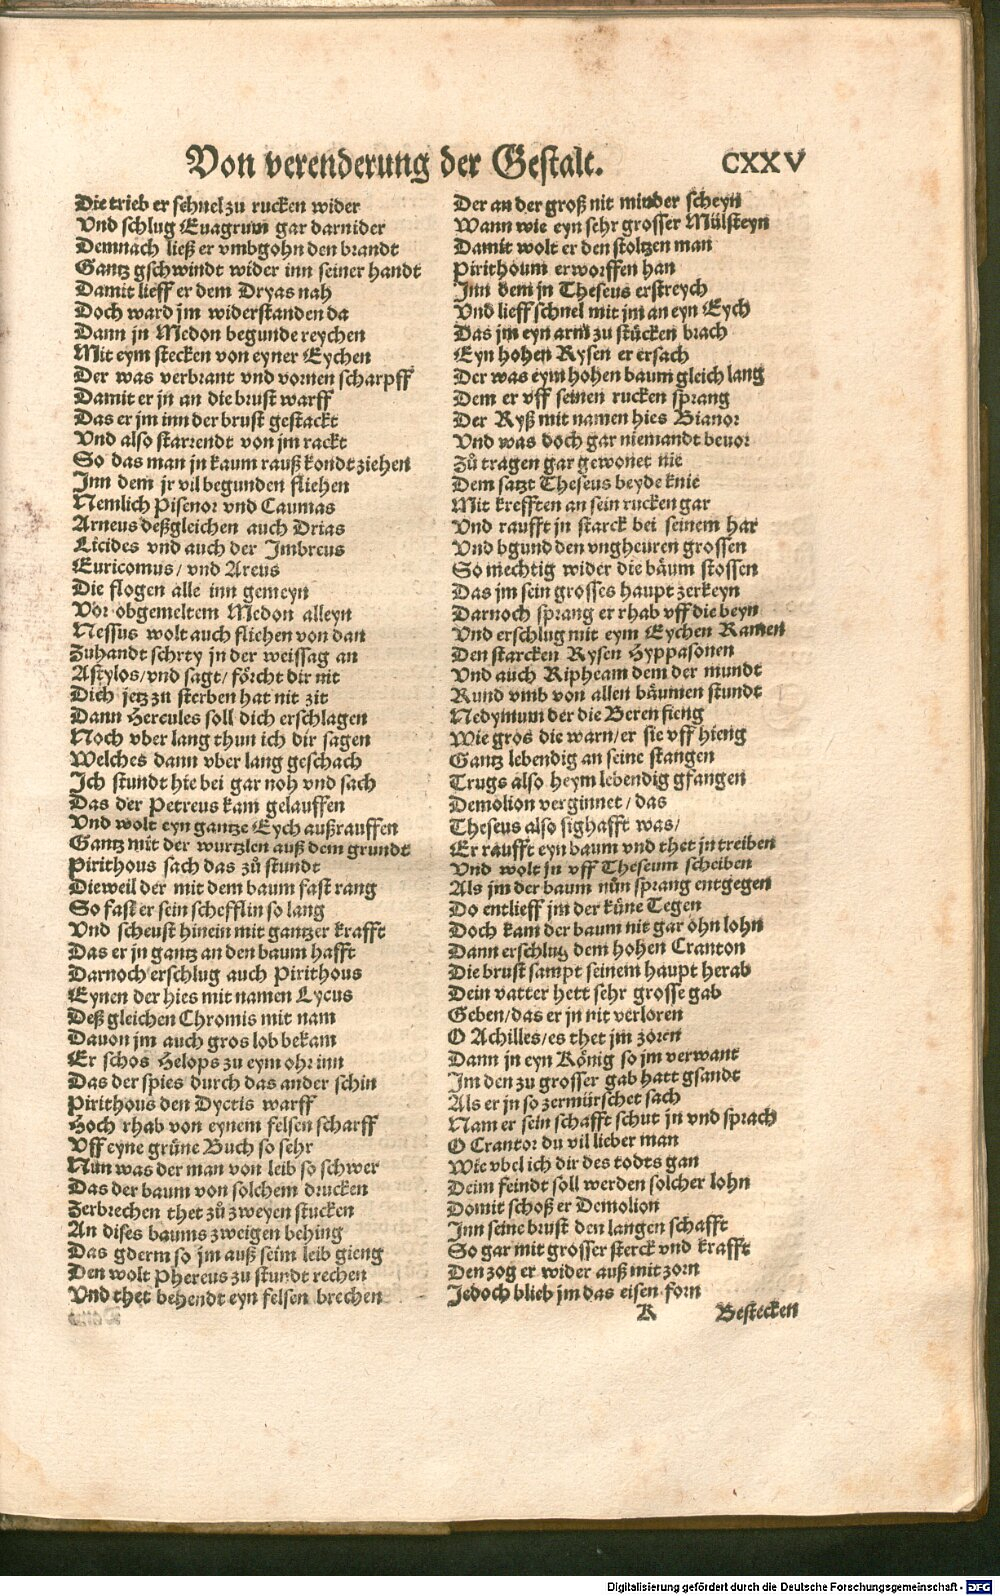 Von verenderung der Gestalt. CXXV
Die trieb er schnel zu rucken wider
Vnd schlug Euagrum gar darnider
Demnach ließ er vmbgohn den brandt
Gantz gschwindt wider inn seiner handt
Damit lieff er dem Dryas nah
Doch ward jm widerstanden da
Dann jn Medon begunde reychen
Mit eym stecken von eyner Eychen
Der was verbrant vnd vornen scharpff
Damit er jn an die brust warff
Das er jm inn der brust gestackt
Vnd also starrendt von jm rackt
So das man jn kaum rauß kondt ziehen
Inn dem jr vil begunden fliehen
Nemlich Pisenor vnd Caumas
Arneus deßgleichen auch Drias
Licides vnd auch der Imbreus
Euricomus/ vnd Areus
Die flogen alle inn gemeyn
Vor obgemeltem Medon alleyn
Nessus wolt auch fliehen von dan
Zuhandt schrey jn der weissag an
Astylos/vnd sagt/ förcht dir nit
Dich jetz zu sterben hat nit zit
Dann Hercules soll dich erschlagen
Noch vber lang thun ich dir sagen
Welches dann vber lang geschach
Ich stundt hie bei gar noh vnd sach
Das der Petreus kam gelauffen
Vnd wolt eyn gantze Eych außrauffen
Gantz mit der wurtzlen auß dem grundt
Pirithous sach das zů stundt
Dieweil der mit dem baum fast rang
So fast er sein schefflin so lang
Vnd scheust hinein mit gantzer krafft
Das er jn gantz an den baum hafft
Darnoch erschlug auch Pirithous
Eynen der hies mit namen Lycus
Deß gleichen Chromis mit nam
Dauon jm auch gros lob bekam
Er schos Helops zu eym ohr inn
Das der spies durch das ander schin
Pirithous den Dyctis warff
Hoch rhab von eynem felsen scharff
Vff eyne grüne Buch so sehr
Nun was der man von leib so schwer
Das der baum von solchem drucken
Zerbrechen thet zů zweyen stucken
An dises baums zweigen behing
Das gderm so jm auß seim leib gieng
Den wolt Phereus zu stundt rechen
Vnd thet behendt eyn felsen brechen
Der an der groß nit minder scheyn
Wann wie eyn sehr grosser Mülsteyn
Damit wolt er den stoltzen man
Pirithoum erworffen han
Inn dem jn Theseus erstreych
Vnd lieff schnel mit jm an eyn Eych
Das jm eyn arm zu stücken brach
Eyn hohen Rysen er ersach
Der was eym hohen baum gleich lang
Dem er vff seinen rucken sprang
Der Ryß mit namen hies Bianor
Vnd was doch gar niemandt beuor
Zů tragen gar gewonet nie
Dem satzt Theseus beyde knie
Mit krefften an sein rucken gar
Vnd raufft jn starck bei seinem har
Vnd bgund den vngheuren grossen
So mechtig wider die bäum stossen
Das jm sein grosses haupt zerkeyn
Darnoch sprang er rhab vff die beyn
Vnd erschlug mit eym Eychen Ramen
Den starcken Rysen Hyppasonen
Vnd auch Ripheam dem der mundt
Rund vmb von allen bäumen stundt
Nedymum der die Beren fieng
Wie gros die warn/er sie vff hieng
Gantz lebendig an seine stangen
Trugs also heym lebendig gfangen
Demolion verginnet/ das
Theseus also sighafft was/
Er raufft eyn baum vnd thet jn treiben
Vnd wolt jn vff Theseum scheiben
Als jm der baum nůn sprang entgegen
Do entlieff jm der küne Tegen
Doch kam der baum nit gar ohn lohn
Dann erschlug dem hohen Cranton
Die brust sampt seinem haupt herab
Dein vatter hett sehr grosse gab
Geben/das er jn nit verloren
O Achilles/es thet jm zoren
Dann jn eyn König so jm verwant
Im den zu grosser gab hatt gsandt
Als er jn so zermürschet sach
Nam er sein schafft schut jn vnd sprach
O Crantor du vil lieber man
Wie vbel ich dir des todts gan
Deim feindt soll werden solcher lohn
Domit schoß er Demolion
Inn seine brust den langen schafft
So gar mit grosser sterck vnd krafft
Den zog er wider auß mit zorn
Jedoch blieb jm das eisen forn
K Bestecken
Digitalisierung gefördert durch die Deutsche Forschungsgemeinschaft - DFG